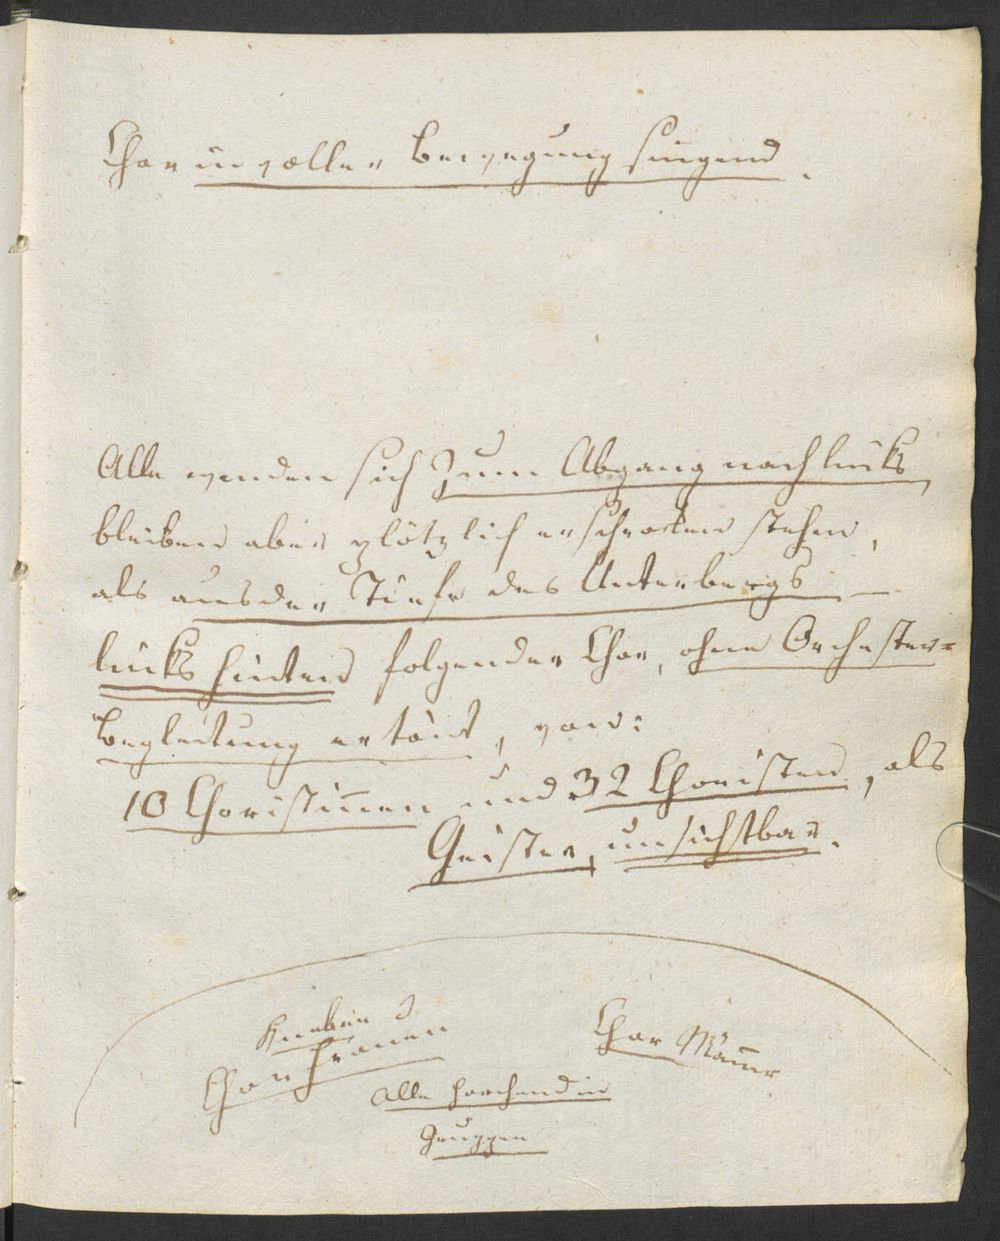 Chor in voller Bewegung singend.
Alle wenden sich zum Abgang nach links,
bleiben aber plötzlich erschrocken stehen,
als aus der Tiefe des Unterbergs –
links hinten folgender Chor, ohne Orchester=
Begleitung ertönt, von:
10 Choristinnen und 32 Choristen, als
Geister, unsichtbar.
Knaben u
Chor Frauen
Chor Männer
Alle horchend in
Gruppen